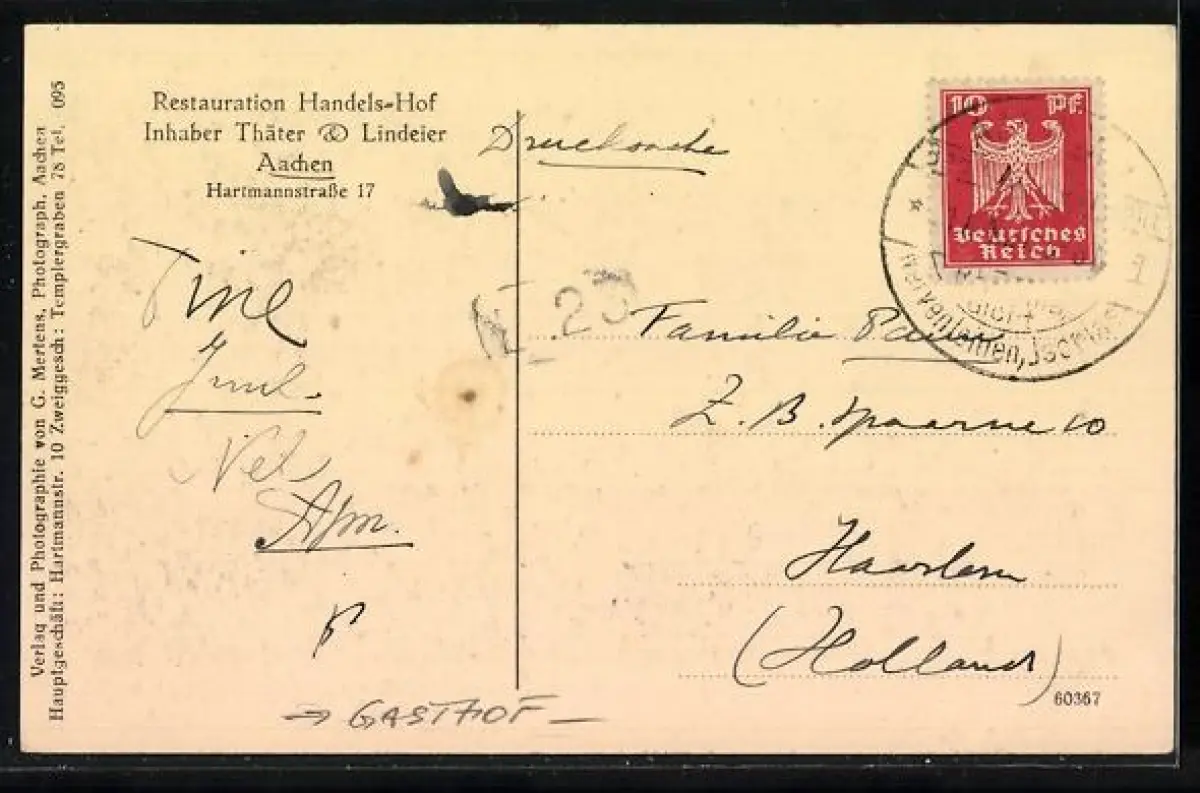 Restauration Handels-Hof
Inhaber Thäter & Lindeier
Aachen
Hartmannstraße 17
Verlag und Photographie von G. Mertens, Photograph, Aachen
Hauptgeschäft: Hartmannstr. 10 Zweiggesch: Templergraben 78 Tel. 095
Drucksache
10 Pf.
Deutsches
Reich
Familie
Z. B. Spaarne 10
Haarlem
(Holland)
Tine
Nel
→ GASTHOF –
60367